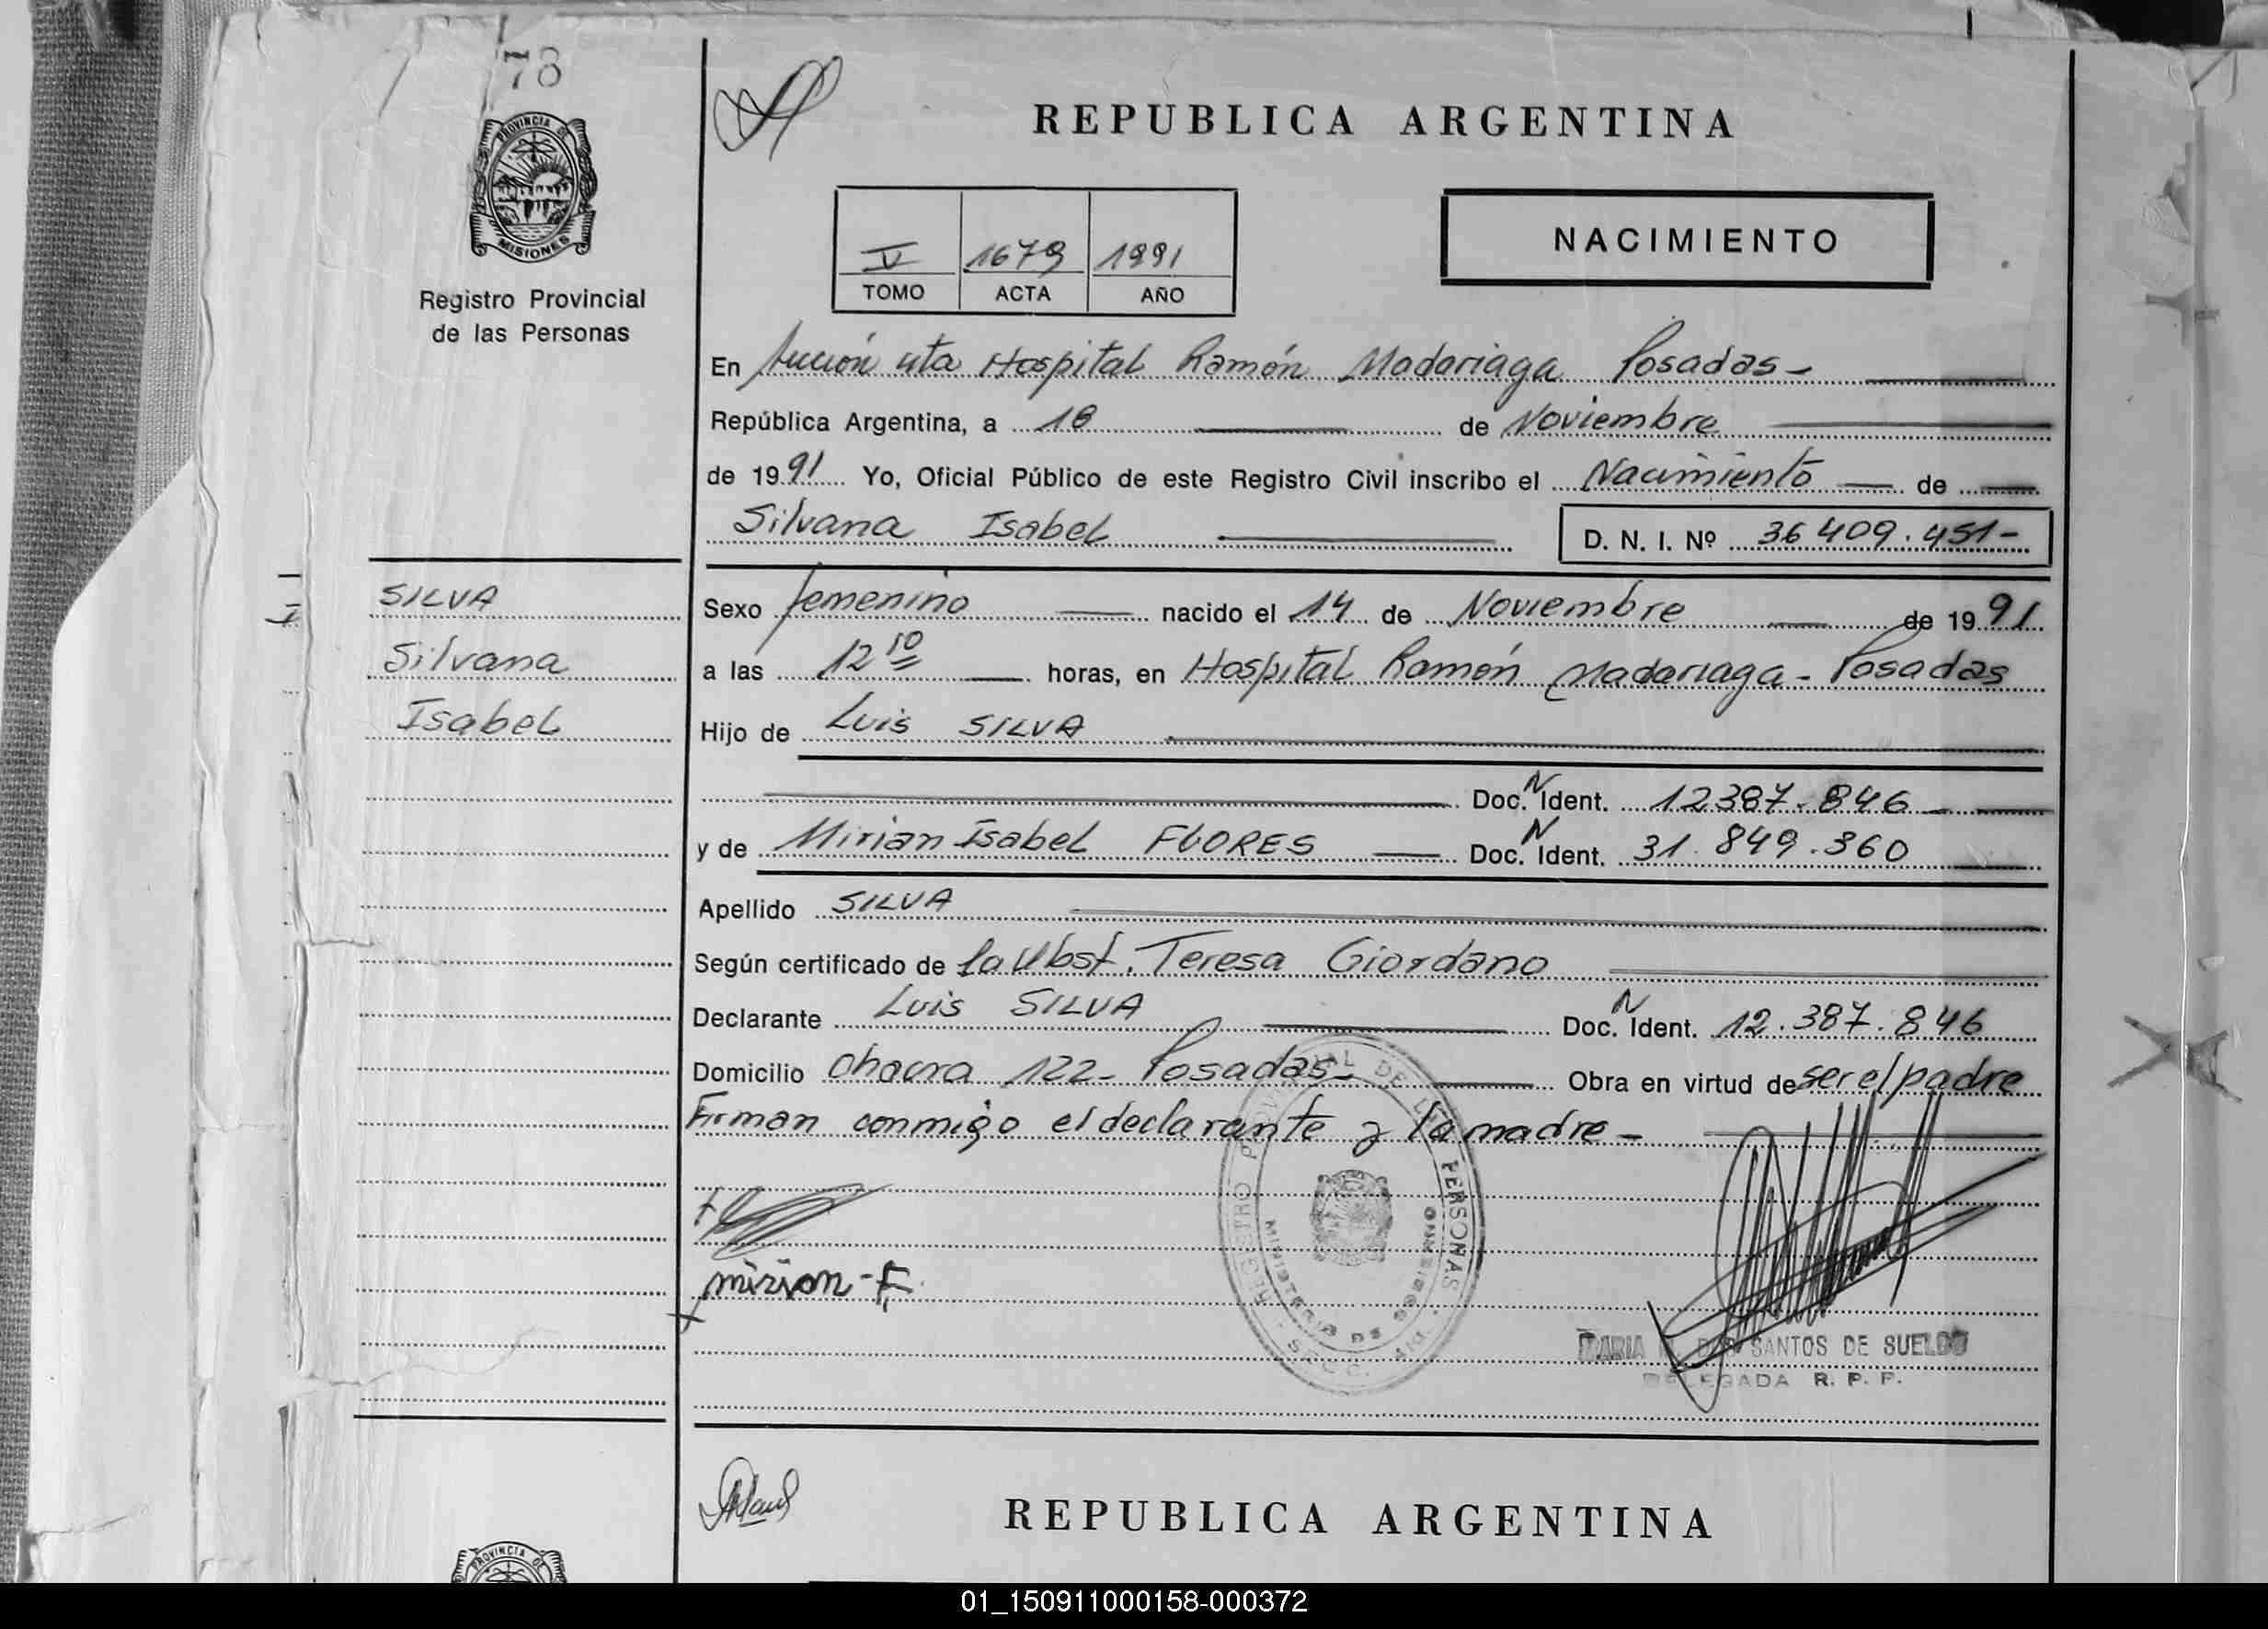 78
PROVINCIA DE
MISIONES
Registro Provincial
de las Personas
REPUBLICA ARGENTINA
V 1679 1991
TOMO ACTA AÑO
NACIMIENTO
En Sección 4ta Hospital Ramón Madariaga Posadas-
República Argentina, a 18 de Noviembre
de 1991 Yo, Oficial Público de este Registro Civil inscribo el Nacimiento de
Silvana Isabel D. N. I. Nº 36409.451-
SILVA
Silvana
Isabel
Sexo femenino nacido el 14 de Noviembre de 1991
a las 12 10 horas, en Hospital Ramón Madariaga - Posadas
Hijo de Luis SILVA
Doc. N Ident. 12387.846
y de Mirian Isabel FLORES Doc. N Ident. 31.849.360
Apellido SILVA
Según certificado de la Obst. Teresa Giordano
Declarante Luis SILVA Doc. N Ident. 12.387.846
Domicilio Chacra 122- Posadas- Obra en virtud de ser el padre
Firman conmigo el declarante y la madre-
REGISTRO PROVINCIAL DE LAS PERSONAS
MINISTERIO DE GOBIERNO
mirian-F.
MARIA DOS SANTOS DE SUELDO
DELEGADA R. P. P.
REPUBLICA ARGENTINA
PROVINCIA DE
01_150911000158-000372